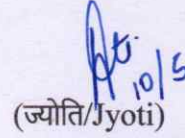 10/5
(ज्योति/Jyoti)